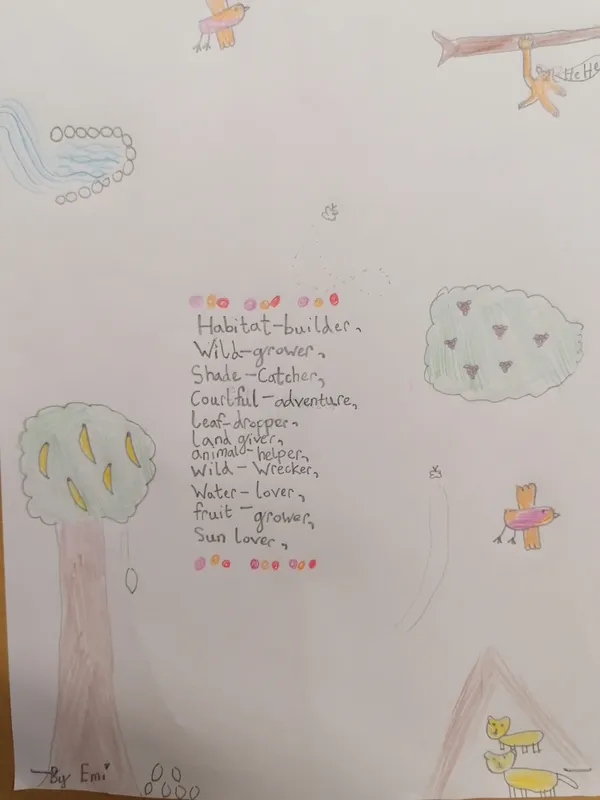 HeHe
Habitat-builder,
Wild-grower,
Shade-Catcher,
Courtful-adventure,
Leaf-dropper,
Land giver,
animal-helper,
Wild-Wrecker,
Water-lover,
fruit-grower,
Sun lover,
By Emi